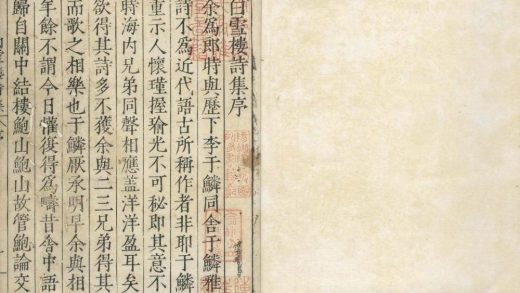 白雪樓詩集序
余為郎時與歷下李于鱗同舍于鱗雅
詩不為近代語古所稱作者非耶于鱗
重示人懷瑾握瑜光不可秘即其意不
欲得其詩多不獲余與二三兄弟得其
時海內兄弟同聲相應盖洋洋盈耳矣
而歌之相樂也于鱗厭承明早余與相
年餘不謂今日懽復得為疇昔舍中語
歸自關中結樓鮑山鮑山故管鮑論交